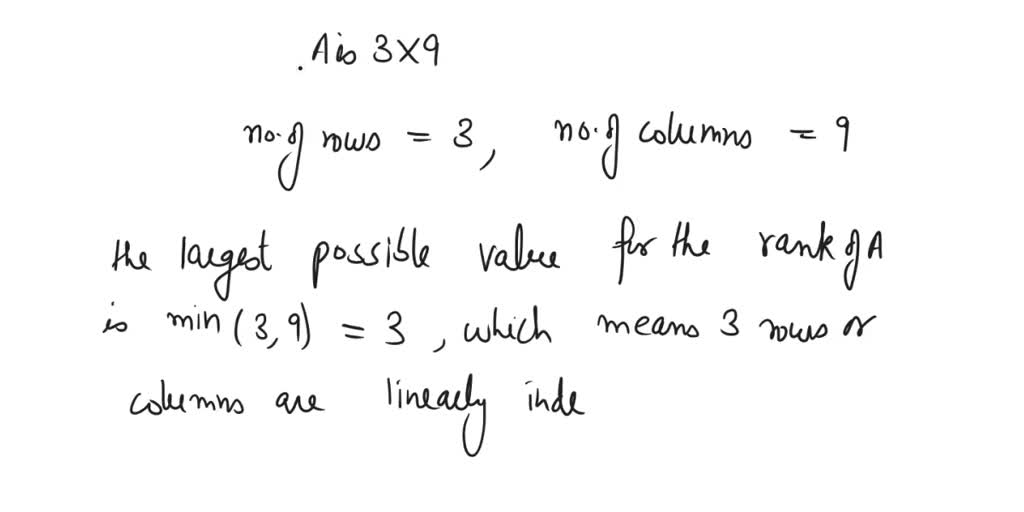 . A is 3×9
no. of rows = 3, no. of columns = 9
the largest possible value for the rank of A
is min (3, 9) = 3, which means 3 rows or
columns are linearly inde